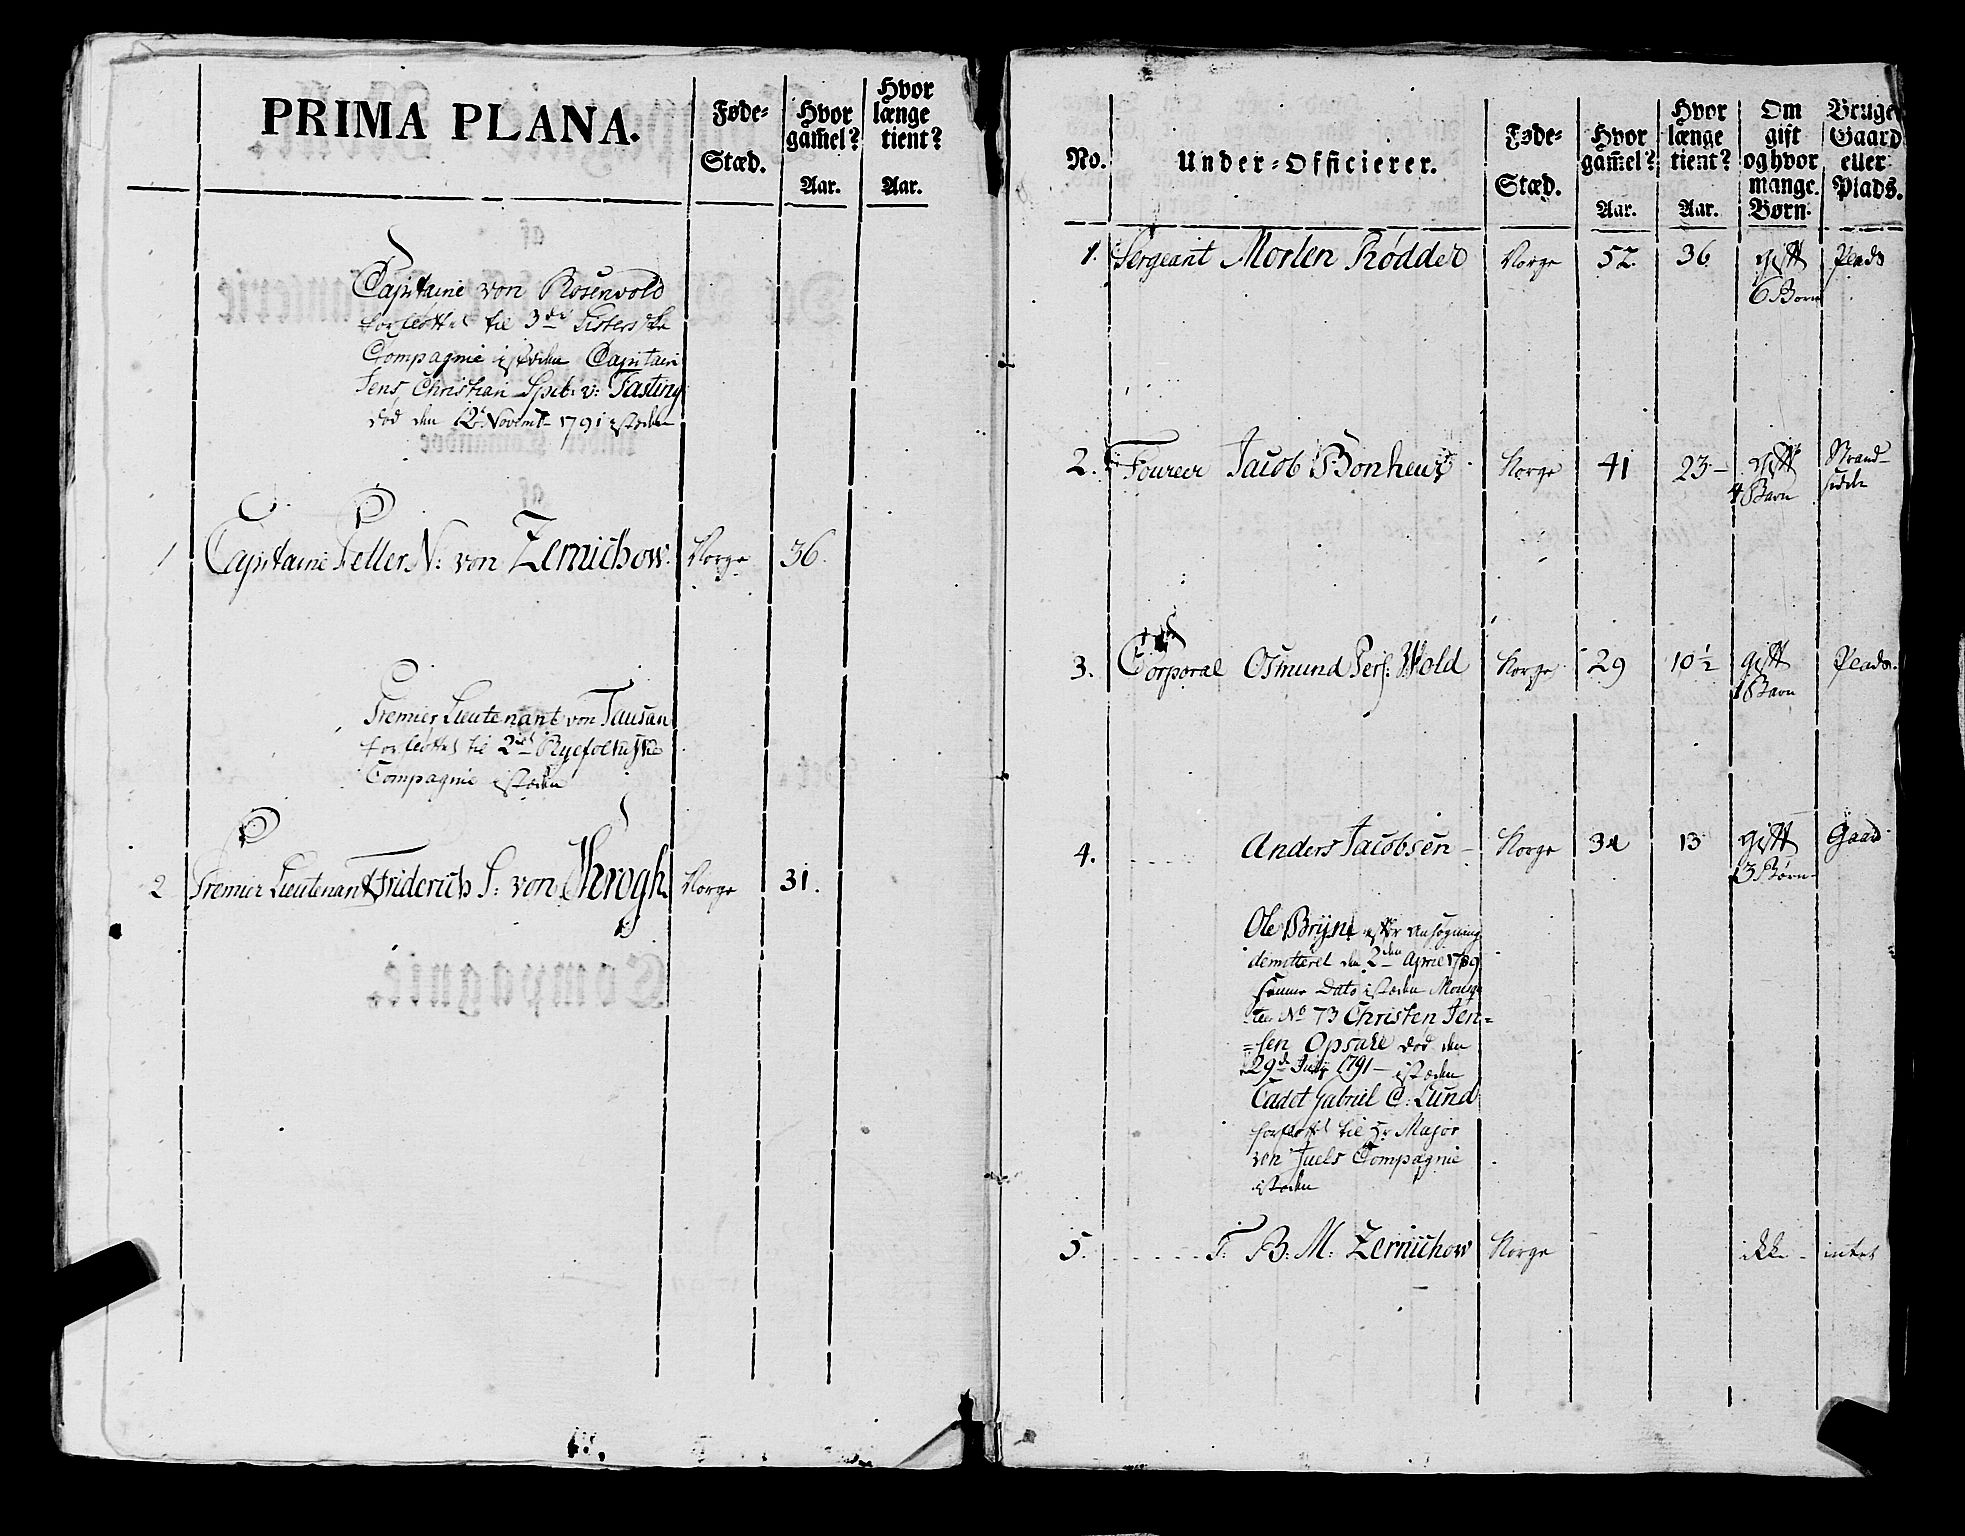 PRIMA PLANA.
Føde-
Stæd.
Hvor
gam̃el?
Aar.
Hvor
længe
tient?
Aar.
Capitaine von Rosenvold
forflöttet til 3die Listerske
Compagnie istæden Capitain
Jens Christian v: Fasting
død den 12t Novembr 1791 istæden
1 Capitaine Petter N: von Zernichow. Norge 36.
Premier Lieutenant von Tausan
forflöttet til 2det Ryefølkiske
Compagnie istæden
2 Premier Lieutenant Friderich S: von Krogh Norge 31.
No.
Under-Officierer.
Føde-
Stæd.
Hvor
gam̃el?
Aar.
Hvor
længe
tient?
Aar.
Om
gift
og hvor
mange
Børn.
Bruger
Gaard
eller
Plads.
1. Sergeant Morten Rødder Norge 52. 36 gift Plads
6 Børn
2. Fourer Jacob Bonheur Norge 41 23 gift Strand-
4 Børn sidder
3. Corporal Osmund Pers: Wold Norge 29 10½ gift Plads.
1 Barn
4. Anders Jacobsen Norge 34 13 gift Gaard
3 Børn
Ole Bryne efter Ansøgning
demitteret den 2den April 1789
samme Dato istæden Mousqe-
teer No 73 Christen Jen=
=sen Opsale død den
29de July 1791 istæden
Cadet Gabriel C: Lund
forflöttet til Hr Major
von Juels Compagnie
istæden
5. T: B: M: Zernichow Norge ikke intet